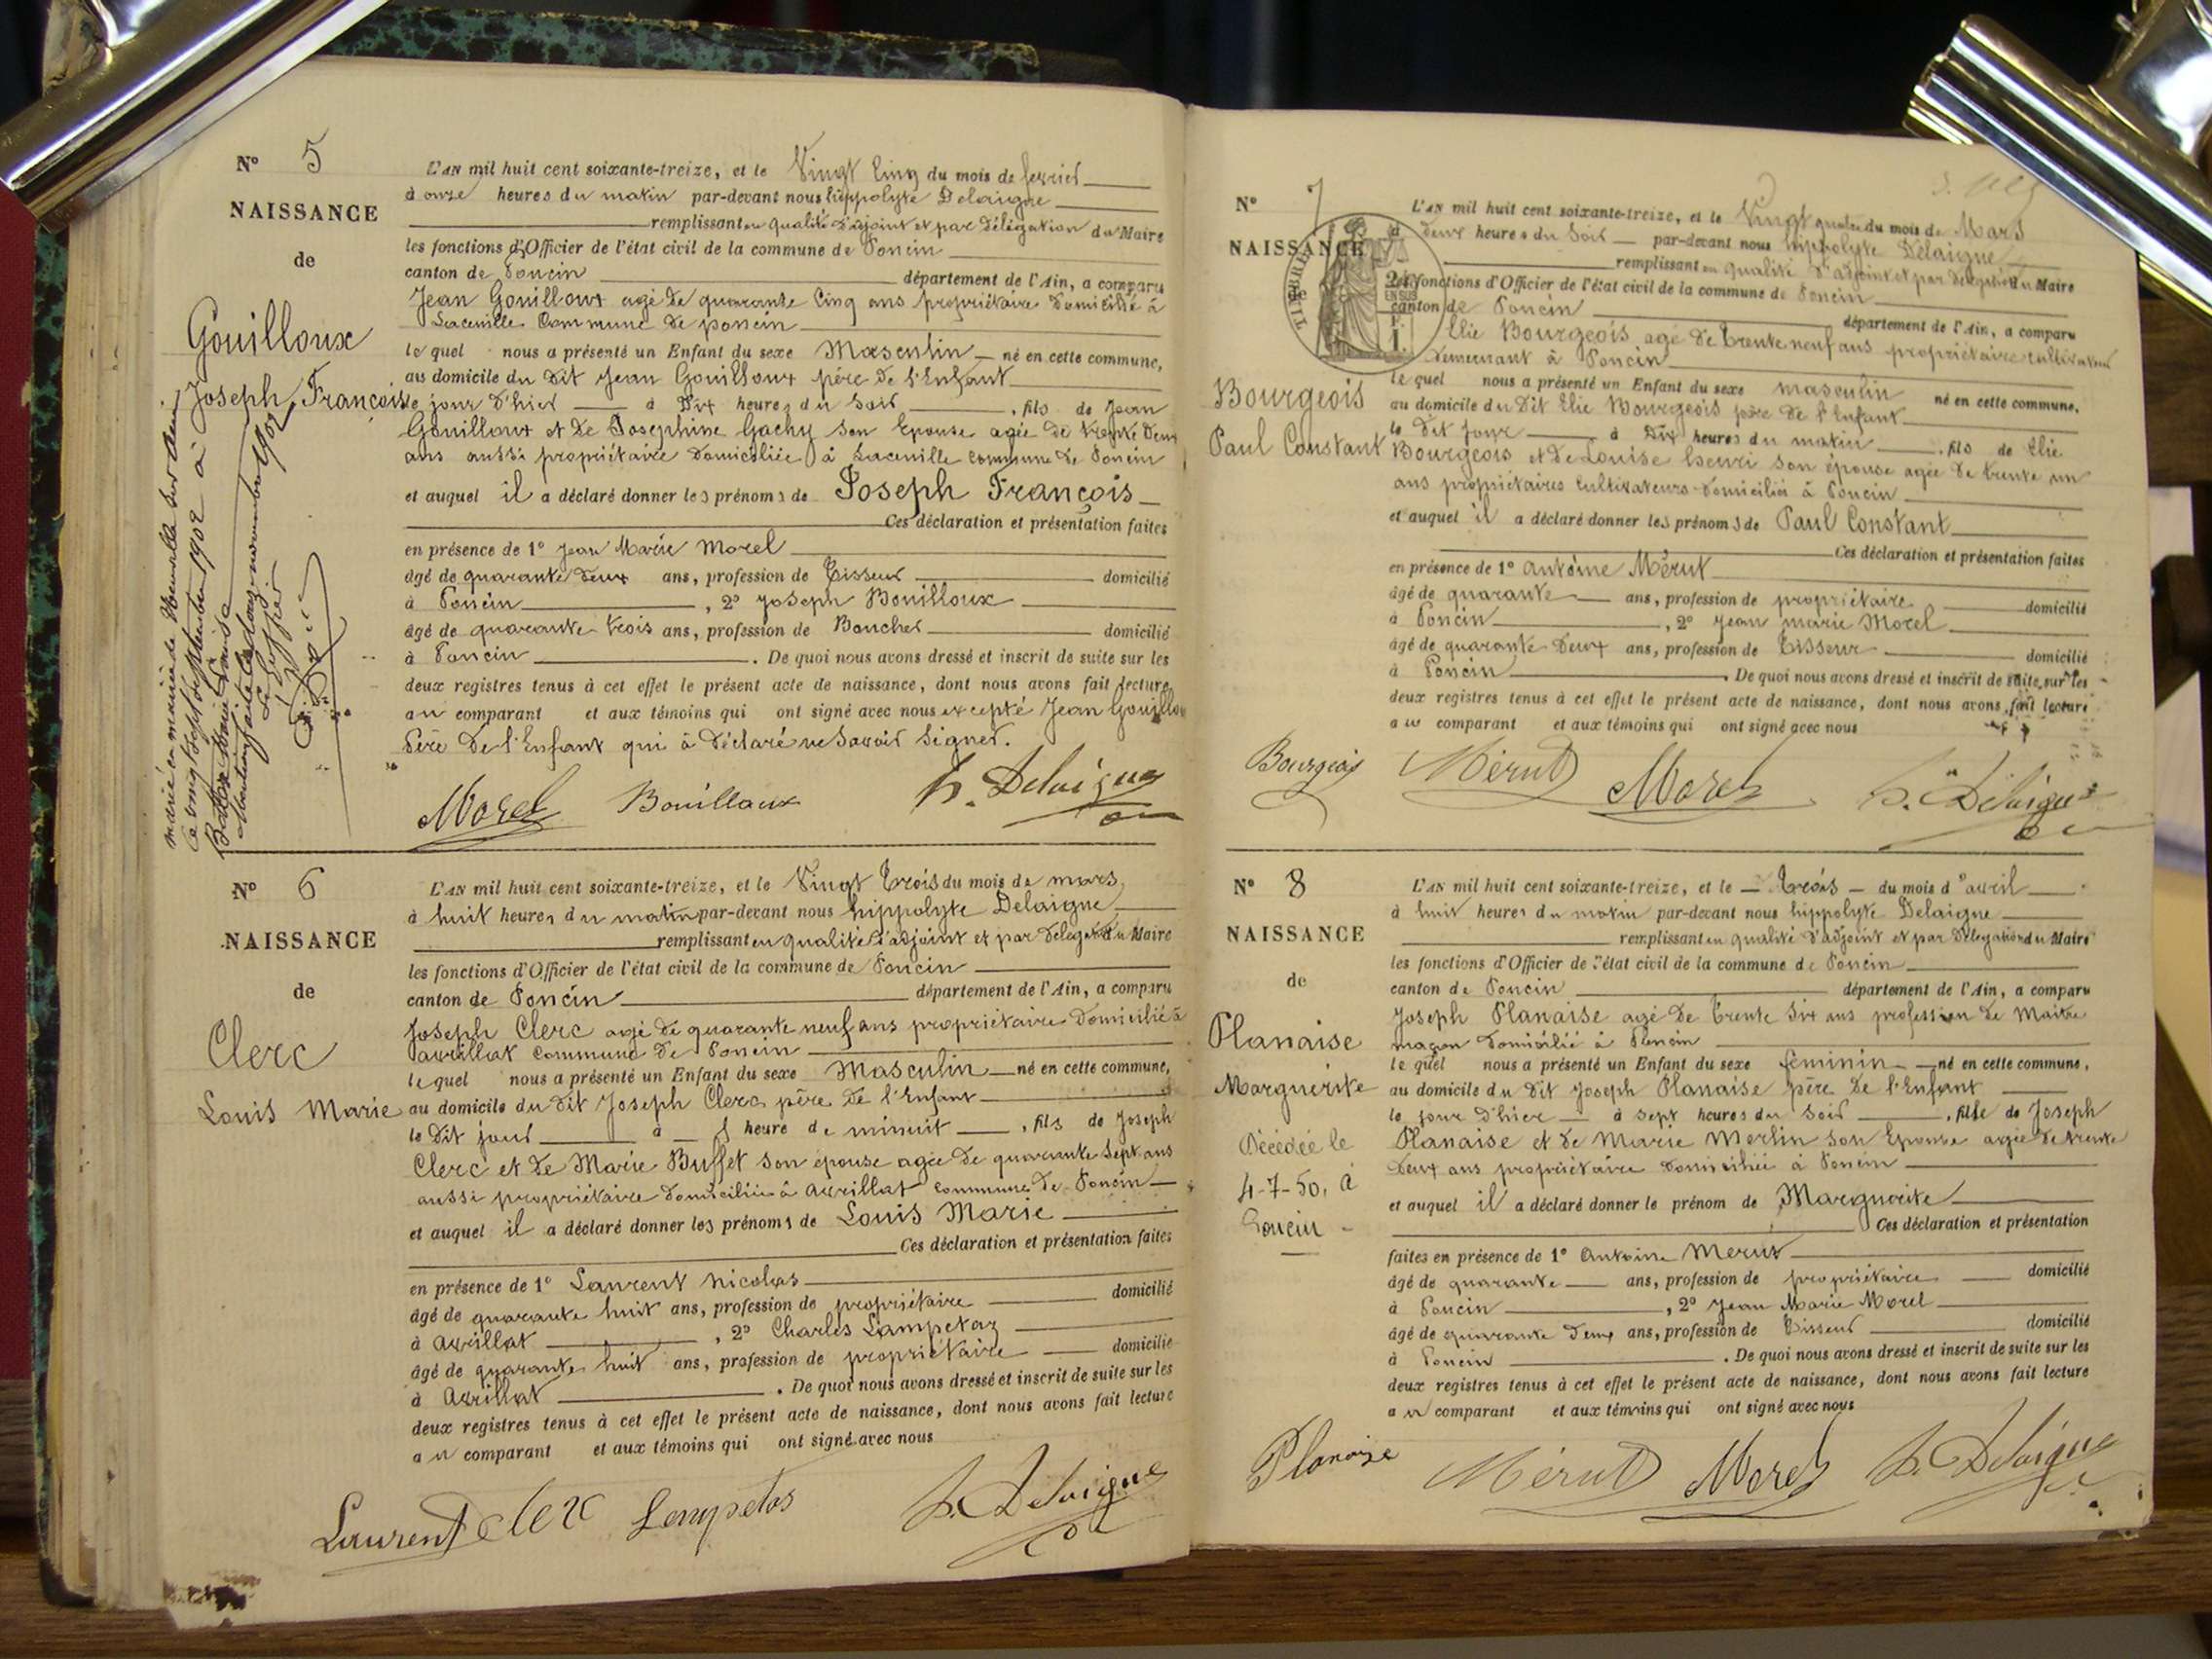 N° 5
NAISSANCE
de
Gouilloux
Joseph François
marié en mairie de Neuville sur Ain
Ce vingt sept septembre 1902 à
Marie Louise
Mention faite le douze novembre 1902
Le Greffier
L'AN mil huit cent soixante-treize, et le Vingt Cinq du mois de fevrier
à onze heures du matin par-devant nous hippolyte Delaigue
remplissant en qualité d'adjoint et par délégation du Maire
les fonctions d'Officier de l'état civil de la commune de Poncin
canton de Poncin département de l'Ain, a comparu
Jean Gouilloux agé de quarante Cinq ans propriétaire domicilié à
Commune de poncin
lequel nous a présenté un Enfant du sexe Masculin né en cette commune,
au domicile du dit Jean Gouilloux père de l'Enfant
le jour d'hier à Dix heures du soir, fils de Jean
Gouilloux et de Josephine Gachy son Epouse agée de trente deux
ans aussi propriétaire domiciliée à commune de Poncin
et auquel il a déclaré donner les prénoms de Joseph François
Ces déclaration et présentation faites
en présence de 1° Jean Marie Morel
âgé de quarante deux ans, profession de Tisseur domicilié
à Poncin, 2° Joseph Bouilloux
âgé de quarante trois ans, profession de Boucher domicilié
à Poncin. De quoi nous avons dressé et inscrit de suite sur les
deux registres tenus à cet effet le présent acte de naissance, dont nous avons fait lecture
au comparant et aux témoins qui ont signé avec nous excepté Jean Gouilloux
Père de l'Enfant qui à déclaré ne savoir signer.
Morel Bouilloux h. Delaigue
N° 6
NAISSANCE
de
Clerc
Louis Marie
L'AN mil huit cent soixante-treize, et le Vingt Trois du mois de mars
à huit heures du matin par-devant nous hippolyte Delaigue
remplissant en qualité d'adjoint et par délégation du Maire
les fonctions d'Officier de l'état civil de la commune de Poncin
canton de Poncin département de l'Ain, a comparu
Joseph Clerc agé de quarante neuf ans propriétaire domicilié à
avrillat commune de Poncin
lequel nous a présenté un Enfant du sexe Masculin né en cette commune,
au domicile du dit Joseph Clerc père de l'Enfant
le dit jour à 1 heure de minuit, fils de Joseph
Clerc et de Marie Buffet son épouse agée de quarante sept ans
aussi propriétaire domiciliée à avrillat commune de Poncin
et auquel il a déclaré donner les prénoms de Louis Marie
Ces déclaration et présentation faites
en présence de 1° Laurent nicolas
âgé de quarante huit ans, profession de propriétaire domicilié
à avrillat, 2° Charles Lampetaz
âgé de quarante huit ans, profession de propriétaire domicilié
à avrillat. De quoi nous avons dressé et inscrit de suite sur les
deux registres tenus à cet effet le présent acte de naissance, dont nous avons fait lecture
au comparant et aux témoins qui ont signé avec nous
Laurent Clerc h. Delaigue
N° 7
NAISSANCE
Bourgeois
Paul Constant
L'AN mil huit cent soixante-treize, et le Vingt quatre du mois de Mars
à deux heures du soir par-devant nous hippolyte Delaigue
remplissant en qualité d'adjoint et par délégation du Maire
les fonctions d'Officier de l'état civil de la commune de Poncin
canton de Poncin département de l'Ain, a comparu
Elie Bourgeois agé de trente neuf ans propriétaire cultivateur
demeurant à Poncin
lequel nous a présenté un Enfant du sexe masculin né en cette commune,
au domicile du Dit Elie Bourgeois père de l'Enfant
le dit jour à Dix heures du matin, fils de Elie
Bourgeois et de Louise henri son épouse agée de trente un
ans propriétaires cultivateurs domiciliés à Poncin
et auquel il a déclaré donner les prénoms de Paul Constant
Ces déclaration et présentation faites
en présence de 1° antoine Mérut
âgé de quarante ans, profession de propriétaire domicilié
à Poncin, 2° Jean marie Morel
âgé de quarante deux ans, profession de Tisseur domicilié
à Poncin. De quoi nous avons dressé et inscrit de suite sur les
deux registres tenus à cet effet le présent acte de naissance, dont nous avons fait lecture
au comparant et aux témoins qui ont signé avec nous
Bourgeois Mérut Morel h. Delaigue
N° 8
NAISSANCE
de
Planaise
Marguerite
Décédée le
4-7-50, à
Poncin
L'AN mil huit cent soixante-treize, et le trois du mois d'avril
à huit heures du matin par-devant nous hippolyte Delaigue
remplissant en qualité d'adjoint et par délégation du Maire
les fonctions d'Officier de l'état civil de la commune de Poncin
canton de Poncin département de l'Ain, a comparu
Joseph Planaise agé de trente six ans profession de Maitre
maçon domicilié à Poncin
lequel nous a présenté un Enfant du sexe feminin né en cette commune,
au domicile du dit Joseph Planaise père de l'Enfant
le jour d'hier à sept heures du soir, fille de Joseph
Planaise et de Marie Merlin son Epouse agée de trente
deux ans propriétaire domiciliée à Poncin
et auquel il a déclaré donner le prénom de Marguerite
Ces déclaration et présentation
faites en présence de 1° antoine Merut
âgé de quarante ans, profession de propriétaire domicilié
à Poncin, 2° Jean Marie Morel
âgé de quarante deux ans, profession de Tisseur domicilié
à Poncin. De quoi nous avons dressé et inscrit de suite sur les
deux registres tenus à cet effet le présent acte de naissance, dont nous avons fait lecture
au comparant et aux témoins qui ont signé avec nous
Planaise Mérut Morel h. Delaigue